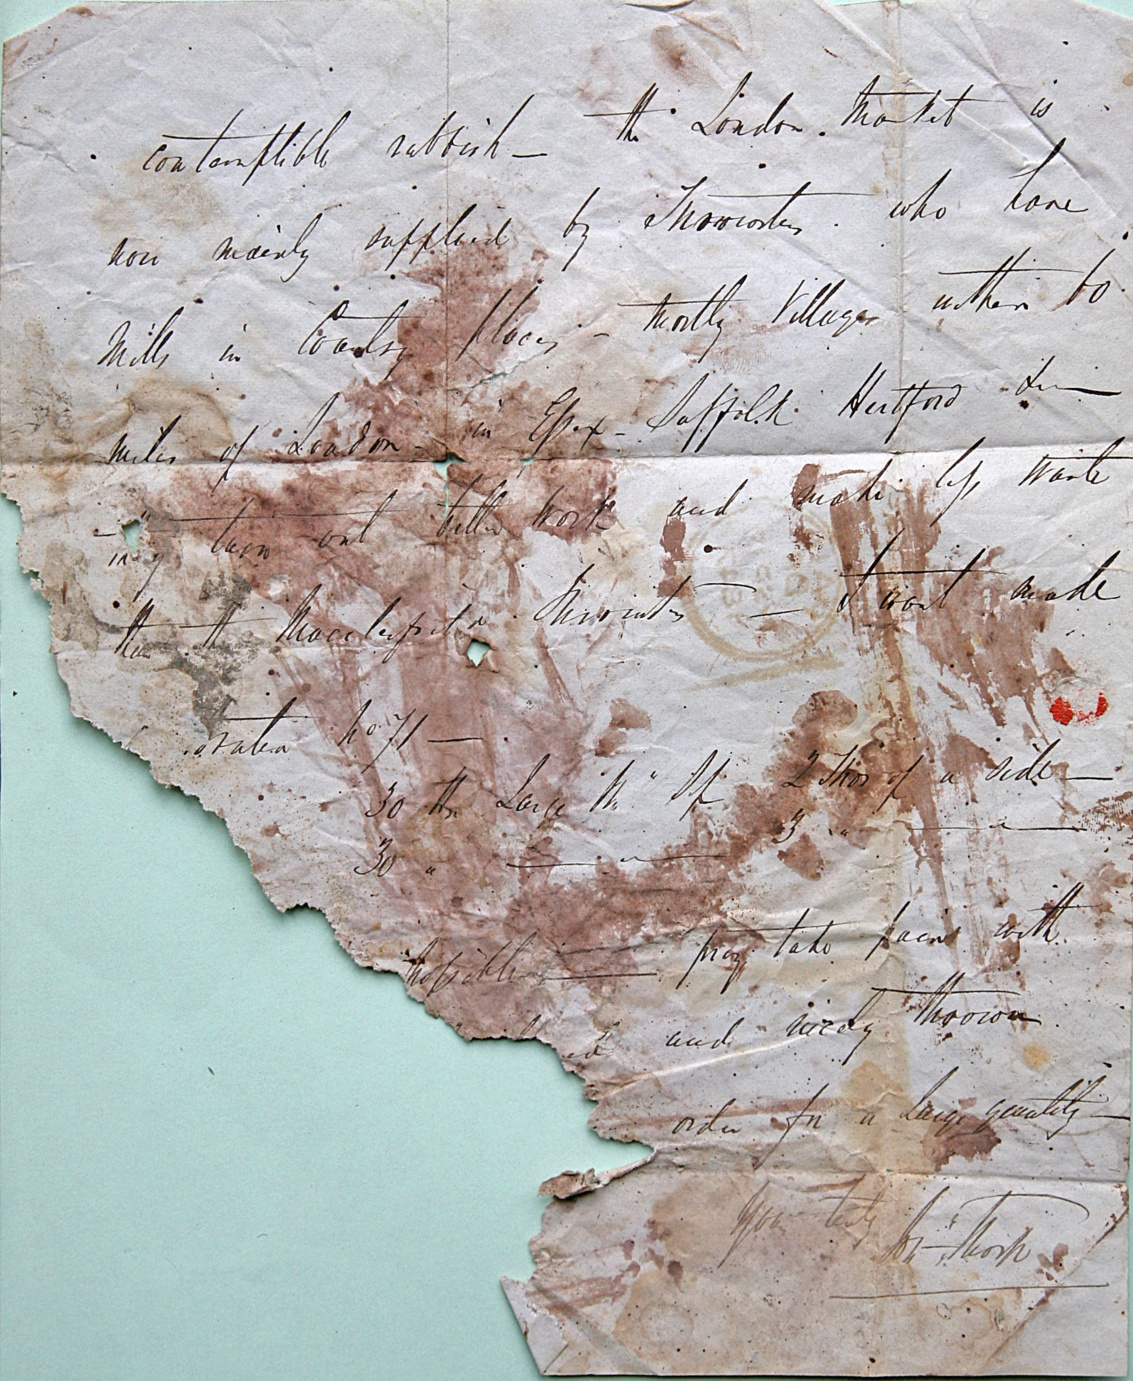 contemptible rubbish — the London Market is
now mainly supplied by Throwsters who have
Mills in Country places — mostly Villages within 60
miles of London — in Essex — Suffolk Hertford &c —
— " — turn out better work and make less waste
than the Macclesfield Throwsters — I want made
no 71 —
30 lbs Large 2 thrs of a side —
30 " — " — 3 " — " —
possible — pray take pains with
and nicely thrown
order for a large quantity —
Yours truly
Thorp